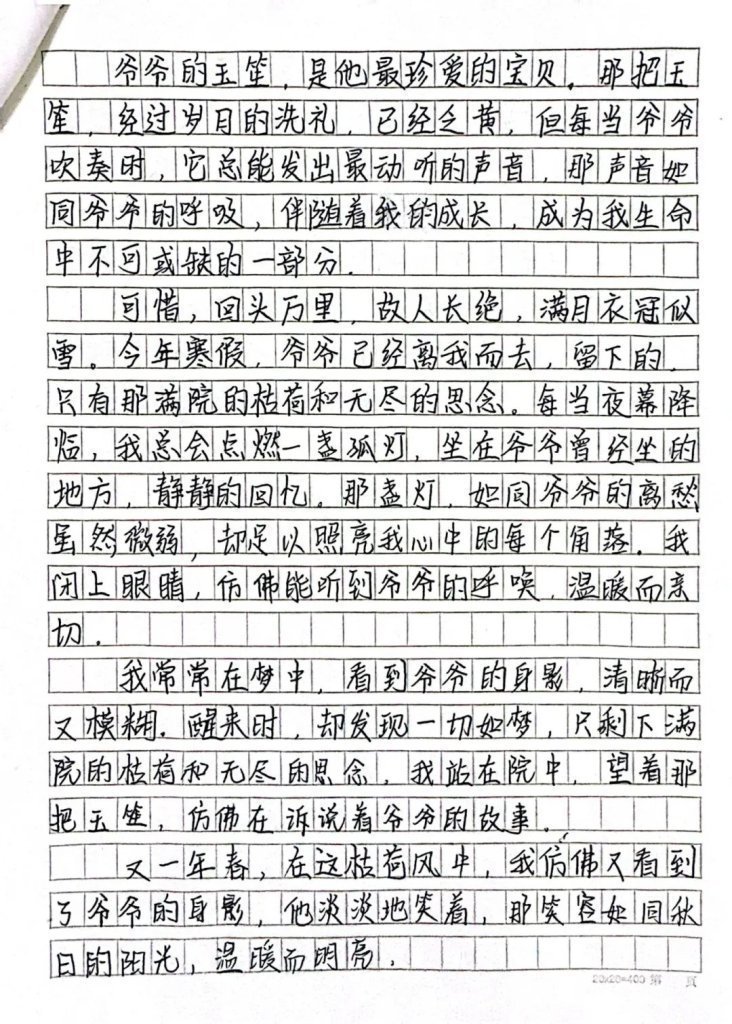 爷爷的玉笙，是他最珍爱的宝贝。那把玉
笙，经过岁月的洗礼，已经乏黄，但每当爷爷
吹奏时，它总能发出最动听的声音，那声音如
同爷爷的呼吸，伴随着我的成长，成为我生命
中不可或缺的一部分.
可惜，回头万里，故人长绝，满月衣冠似
雪。今年寒假，爷爷已经离我而去，留下的，
只有那满院的枯荷和无尽的思念。每当夜幕降
临，我总会点燃一盏孤灯，坐在爷爷曾经坐的
地方，静静的回忆。那盏灯，如同爷爷的离愁
虽然微弱，却足以照亮我心中的每个角落.我
闭上眼睛，仿佛能听到爷爷的呼唤，温暖而亲
切.
我常常在梦中，看到爷爷的身影，清晰而
又模糊.醒来时，却发现一切如梦，只剩下满
院的枯荷和无尽的思念，我站在院中，望着那
把玉笙，仿佛在诉说着爷爷的故事.
又一年春，在这枯荷风中，我仿佛又看到
了爷爷的身影，他淡淡地笑着，那笑容如同秋
日的阳光，温暖而明亮.
20×20=400 第 页